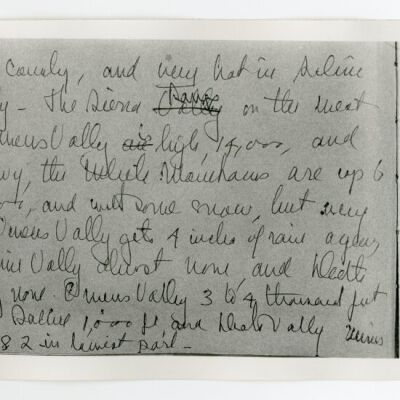 county, and very hot in Saline
y - The Sierra Vally Range on the west
mens Vally air high, 14,000, and
the White Mountains are up to
and with some snow, but very
Owens Vally gets 4 inches of rain a year,
ine Vally almost none and Death
none. Owens Vally 3 to 4 thousand feet
Saline 1,000 ft and Death Vally minus
82 in lowest part -